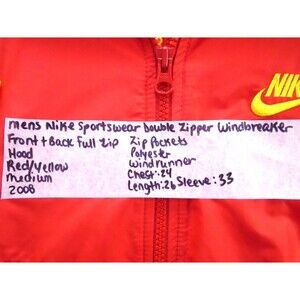 NIKE
mens Nike Sportswear Double Zipper Windbreaker
Front + Back Full Zip
Hood
Red/Yellow
medium
2008
Zip Pockets
Polyester
Windrunner
Chest: 24
Length: 26 Sleeve: 33